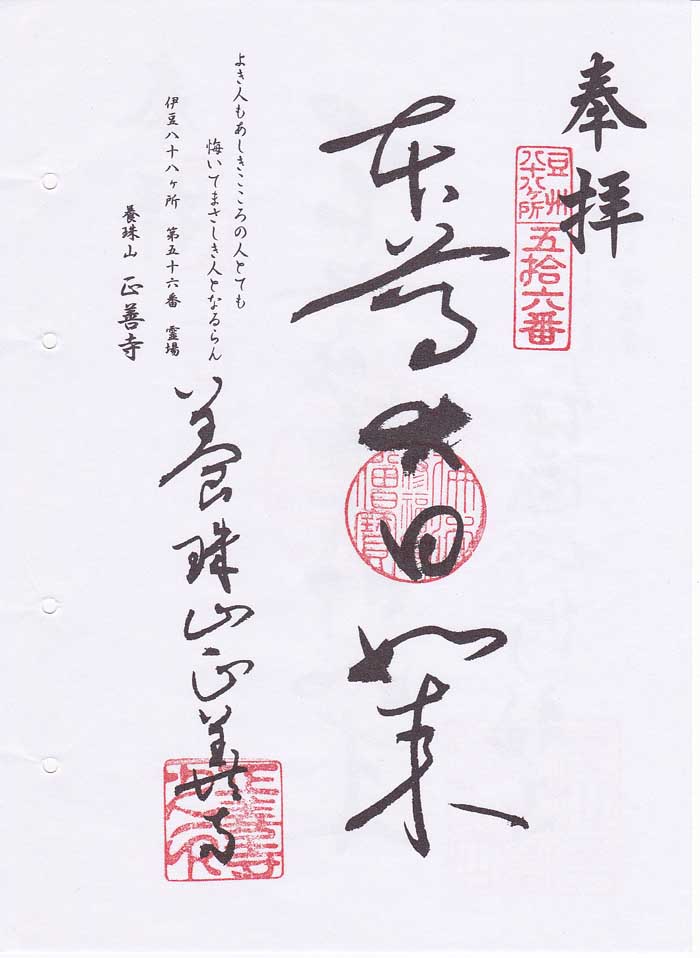 奉拝
豆州
八十八ヶ所
五拾六番
本尊大日如来
よき人もあしきこころの人とても
悔いてまさしき人となるらん
伊豆八十八ヶ所 第五十六番 霊場
養珠山 正善寺
養珠山正善寺